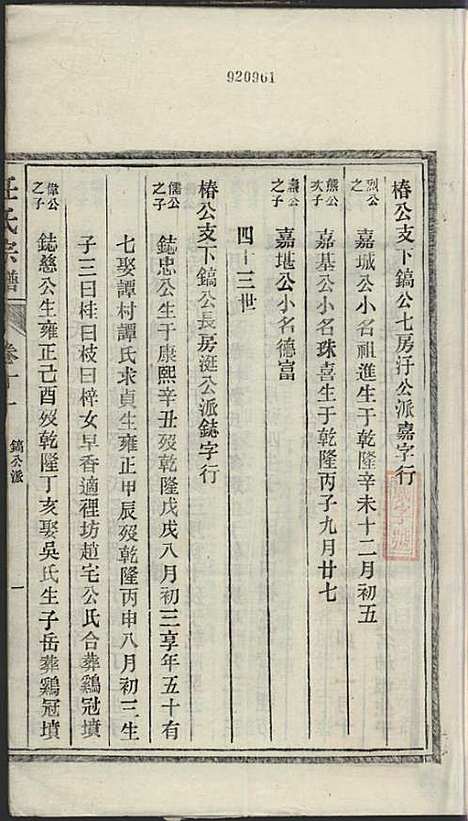 920961
椿公支下鎬公七房汙公派嘉字行
烈公之
嘉城公小名祖進生于乾隆辛未十二月初五
熊公次子
嘉基公小名珠喜生于乾隆丙子九月廿七
燾公之子
嘉堪公小名德富
四十三世
椿公支下鎬公長房涎公派鋕字行
儒公之子
鋕忠公生于康熙辛丑歿乾隆戊戌八月初三享年五十有
七娶譚村譚氏求貞生雍正甲辰歿乾隆丙申八月初三生
子三曰桂曰枝曰梓女早香適裡坊趙宅公氏合葬鷄冠墳
偉公之子
鋕慈公生雍正己酉歿乾隆丁亥娶吳氏生子岳葬鷄冠墳
氏宗譜
卷十一
鎬公派
一